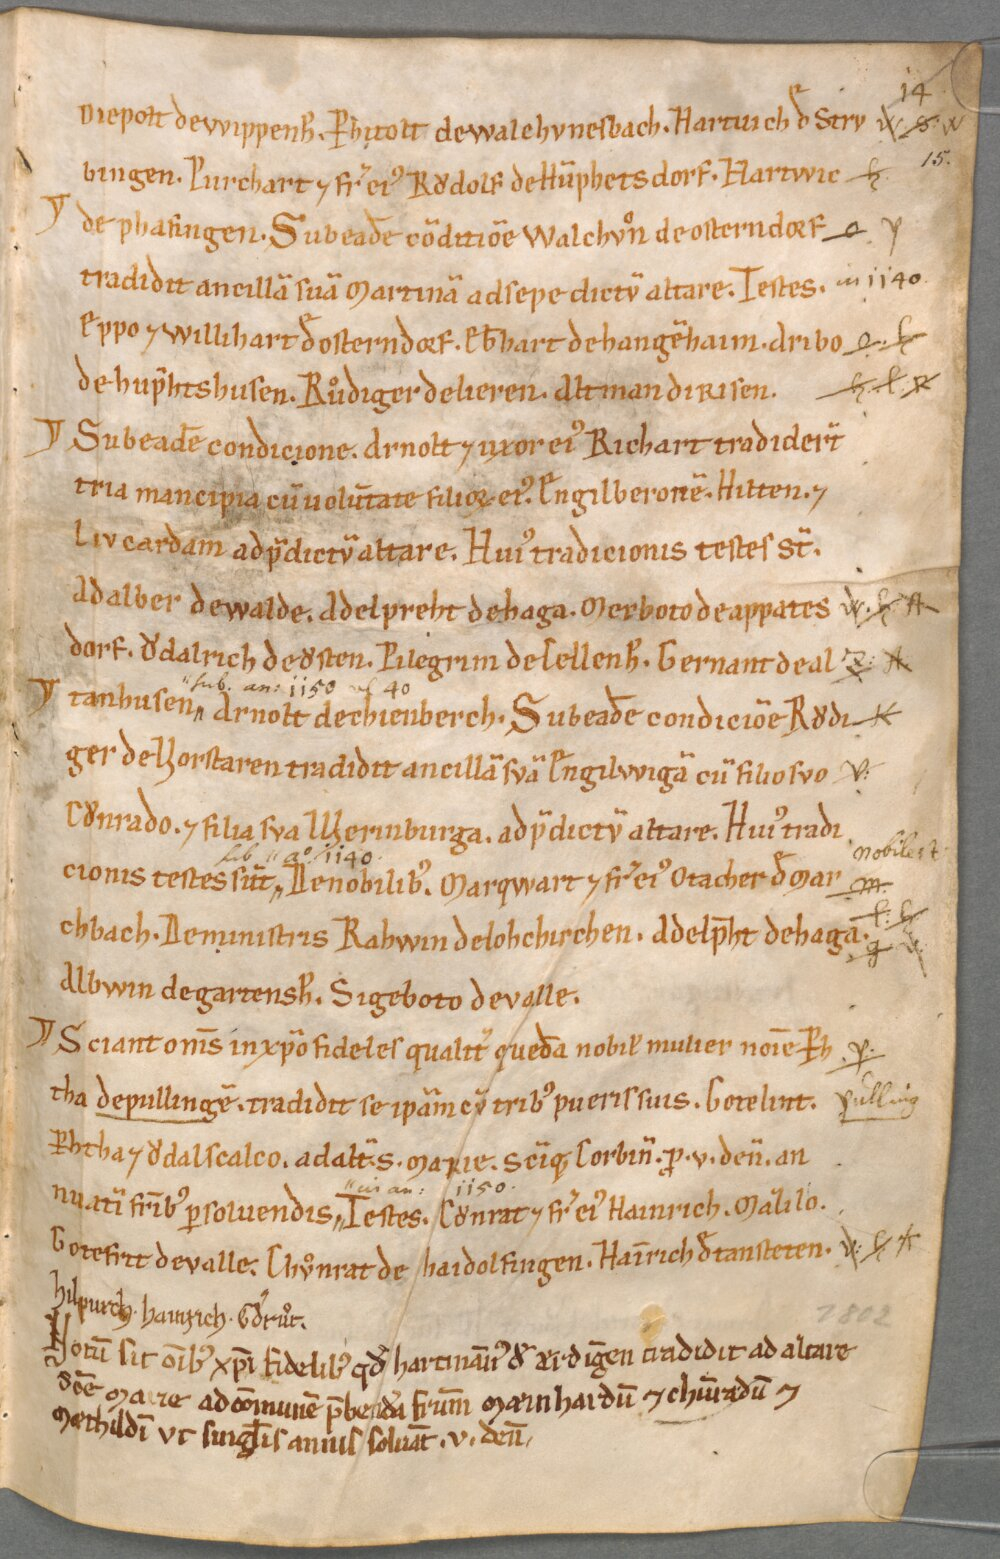 14
Diepolt de wippenh̄. P̄htolt de walchvnesbach. Hartwich d̄ Strv
15.
bingen. Purchart ⁊ fr̄ ei᷒ Rvͦdolf de Hūphetsdorf. Hartwic
de phafingen. Sub eadē cōditiōe walchvͦn de osterndorf
tradidit ancillā suā Martinā ad sepe dictv̄ altare. Testes. in 1140.
Eppo ⁊ willihart d̄ osterndorf. Eb̄hart de hangēhaim. Aribo
de hup̄htshusen. Rvͦdiger de lieren. Altman di Risen.
Sub eadē condicione. Arnolt ⁊ uxor ei᷒ Richart traderūt
tria mancipia cū volūtate filioꝝ ei᷒. Engilberonē. Hilten. ⁊
Livcardam ad p̄dictv̄ altare. Hui᷒ tradicionis testes st̄.
Adalber de walde. Adelpreht de haga. Merboto de appates
dorf. Ŏdalrich de ŏsten. Pilegrim de Cellenh̄. Gernant de al
sub. an: 1150 vl 40
tanhusen„ Arnolt de chienberch. Sub eadē condiciōe Rŏdi
ger de horstaren tradidit ancillā svā Engilwigā cū filio svo
Cŏnrado. ⁊ filia sva Werinburga. ad p̄dictv̄ altare. Hui᷒ tradi
sub a° 1140.
nobiles
cionis testes sūt„ De nobilib᷒. Marqwart ⁊ fr̄ ei᷒ Otacher d̄ Mar
chbach. De ministris Rahwin de lohchirchen. Adelp̄ht de haga.
Albwin de gartensh̄. Sigeboto de valle.
Sciant om̄s in xp̄o fideles qualit̄ quedā nobil᷒ mulier noīe P̄h
tha de pullingē. tradidit se ipām cv̄ trib᷒ pueris suis. Gotelint. pulling
P̄htha ⁊ ŏdalscalco. ad alt̄. S. Marie. Scīq; Corbin̄. ꝓ. v. den̄. an
in an: 1150.
nuatī frīb᷒ ꝑsoluendis„ Testes. Cŏnrat ⁊ fr̄ ei᷒ Hainrich. Mālilo.
Gotefrit de valle. Chvͦnrat de haidolfingen. Haīrich d̄ tansteten.
hilpurch. hainrich. Gŏtrūt.
Notū sit oīb᷒ xpī fidelib᷒ qd̄ hartmān᷒ d̄ ærdīgen tradidit ad altare
scē Marie ad cōmunē p̄bendā frūm Mæinhardū ⁊ chūradū ⁊
Mæthildī vt singl̄is annis soluāt. v. den̄.
1802